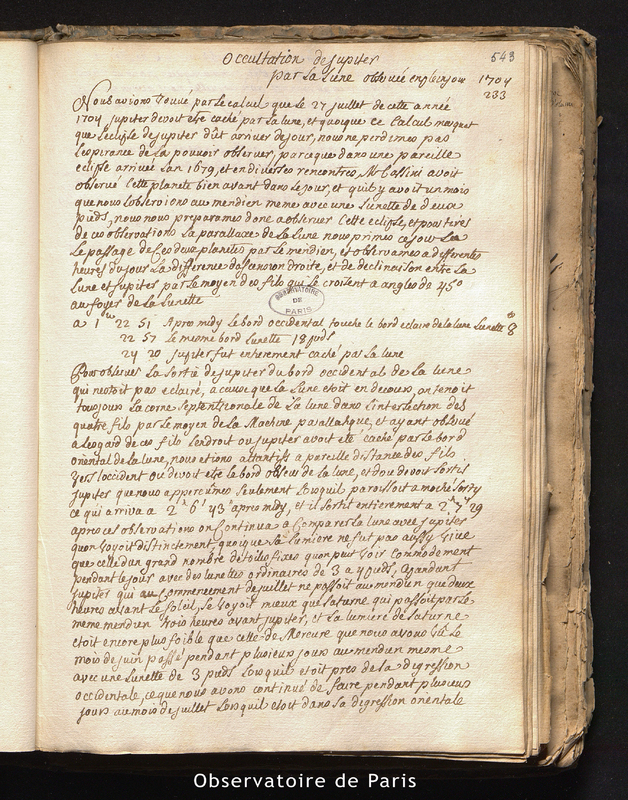 Occultation de Jupiter 543
par La Lune observée en plein jour 1704
233
Nous avions trouvé par le calcul que le 27 juillet de cette année
1704 Jupiter devoit estre caché par la lune, et quoique ce calcul marquat
que leclipse de jupiter dût arriver de jour, nous ne perdimes pas
lesperance de la pouvoir observer, parceque dans une pareille
eclipse arrivée lan 1679, et en diverses rencontres, Mr Cassini avoit
observé cette planete bien avant dans le jour, et quil y avoit un mois
que nous lobservions au meridien meme avec une lunette de deux
pieds, nous nous preparames donc a observer cette eclipse, et pour tirer
de ces observations la parallaxe de la Lune nous primes ce jour La
Le passage de ces deux planetes par le meridien, et observames a differentes
heures du jour La difference dascension droite, et de declinaison entre La
Lune et jupiter par le moyen des fils qui se croisent a angles de 45°
au foyer de la Lunette
OBSERVATOIRE DE PARIS
a 1h 22 51 Apres midy Le bord occidental touche le bord eclairé de la lune Lunette 8
22 57 Le meme bord Lunette 18 pieds
24 20 Jupiter fut entierement caché par La lune
Pour observer La sortie de jupiter du bord occidental de La lune
qui netoit pas eclairé, a cause que La Lune etoit en decours, on tenoit
toujours La corne septentrionale de la lune dans lintersection des
quatre fils par le moyen de La Machine parallatique, et ayant observé
a legard de ces fils lendroit ou jupiter avoit eté caché par le bord
oriental de la lune, nous etions attentifs a pareille distance des fils
vers loccident ou devoit estre le bord obscur de la lune, et dou devoit sortir
jupiter que nous apperceumes seulement Lorsquil paroissoit a moitié sorty
ce qui arriva a 2h 6' 43" apres midy, et il sortit entierement a 2h 7' 29
apres ces observations on Continua a comparer La lune avec jupiter
quon voyoit distinctement quoique sa lumiere ne fut pas aussy vive
que celle dun grand nombre detoiles fixes quon peut voir commodement
pendant le jour avec des lunettes ordinaires de 3 a 4 pieds,
jupiter qui au Commencement de juillet ne passoit au meridien que deux
heures avant le soleil, se voyoit mieux que saturne qui passoit par Le
meme meridien trois heures avant jupiter, et La lumiere de saturne
etoit encore plus foible que celle de Mercure que nous avons vû Le
mois de juin passé pendant plusieurs jours au meridien mesme
avec une Lunette de 3 pieds Lorsquil etoit pres de la digression
occidentale, ce que nous avons continué de faire pendant plusieurs
jours au mois de juillet Lorsquil etoit dans sa digression orientale
Observatoire de Paris